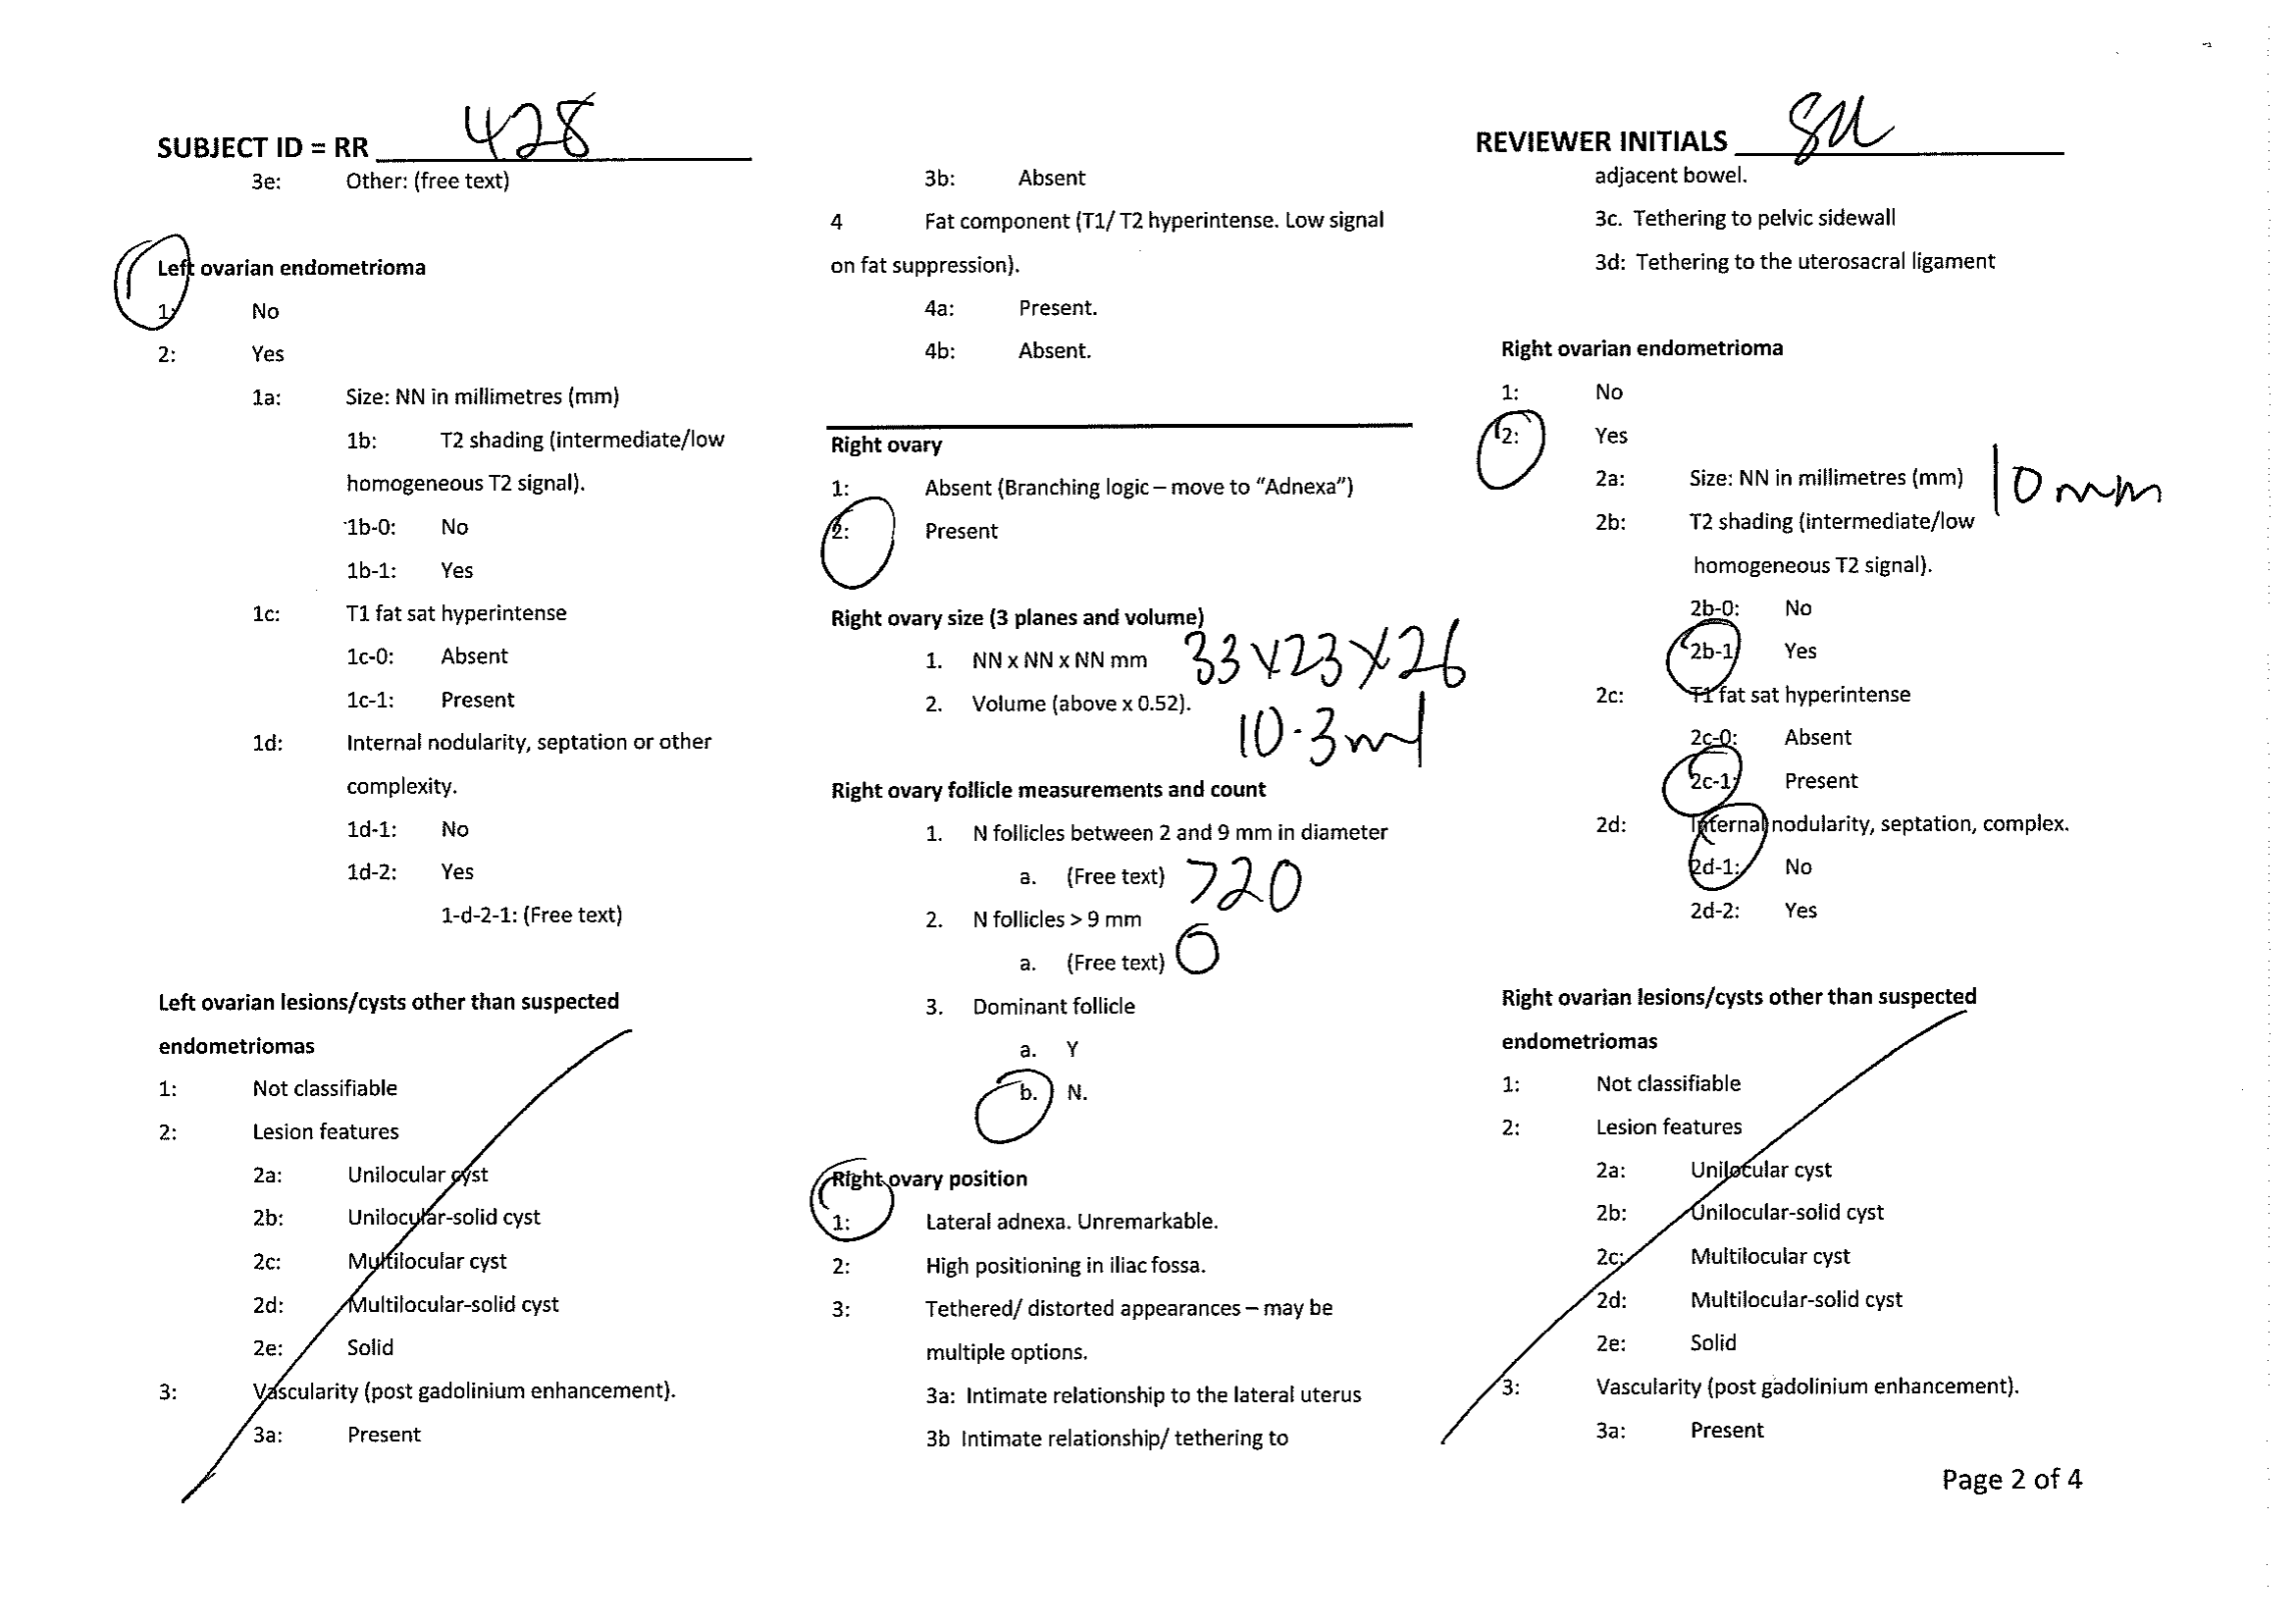 SUBJECT ID = RR 428
3e: Other: (free text)
Left ovarian endometrioma
1: No
2: Yes
1a: Size: NN in millimetres (mm)
1b: T2 shading (intermediate/low
homogeneous T2 signal).
1b-0: No
1b-1: Yes
1c: T1 fat sat hyperintense
1c-0: Absent
1c-1: Present
1d: Internal nodularity, septation or other
complexity.
1d-1: No
1d-2: Yes
1-d-2-1: (Free text)
Left ovarian lesions/cysts other than suspected
endometriomas
1: Not classifiable
2: Lesion features
2a: Unilocular cyst
2b: Unilocular-solid cyst
2c: Multilocular cyst
2d: Multilocular-solid cyst
2e: Solid
3: Vascularity (post gadolinium enhancement).
3a: Present
3b: Absent
4 Fat component (T1/ T2 hyperintense. Low signal
on fat suppression).
4a: Present.
4b: Absent.
Right ovary
1: Absent (Branching logic – move to “Adnexa”)
2: Present
Right ovary size (3 planes and volume)
1. NN x NN x NN mm 33x23x26
2. Volume (above x 0.52).
10.3ml
Right ovary follicle measurements and count
1. N follicles between 2 and 9 mm in diameter
a. (Free text) >20
2. N follicles > 9 mm
a. (Free text) 0
3. Dominant follicle
a. Y
b. N.
Right ovary position
1: Lateral adnexa. Unremarkable.
2: High positioning in iliac fossa.
3: Tethered/ distorted appearances – may be
multiple options.
3a: Intimate relationship to the lateral uterus
3b Intimate relationship/ tethering to
REVIEWER INITIALS
adjacent bowel.
3c. Tethering to pelvic sidewall
3d: Tethering to the uterosacral ligament
Right ovarian endometrioma
1: No
2: Yes
2a: Size: NN in millimetres (mm) 10mm
2b: T2 shading (intermediate/low
homogeneous T2 signal).
2b-0: No
2b-1: Yes
2c: T1 fat sat hyperintense
2c-0: Absent
2c-1: Present
2d: Internal nodularity, septation, complex.
2d-1: No
2d-2: Yes
Right ovarian lesions/cysts other than suspected
endometriomas
1: Not classifiable
2: Lesion features
2a: Unilocular cyst
2b: Unilocular-solid cyst
2c: Multilocular cyst
2d: Multilocular-solid cyst
2e: Solid
3: Vascularity (post gadolinium enhancement).
3a: Present
Page 2 of 4